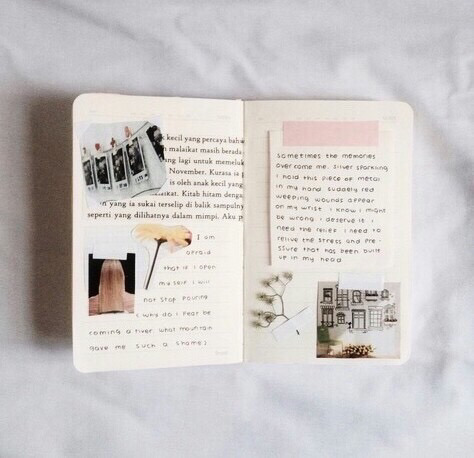 k kecil yang percaya bahw
malaikat masih berada
ng lagi untuk memeluk
November. Kurasa ia p
is oleh anak kecil yang
n. Kitab hitam dengan
an yang ia sukai terselip di balik sampulny
seperti yang dilihatnya dalam mimpi. Aku p
I am
afraid
that if I open
myself I will
not stop pouring
( why do I fear be
coming a river what mountain
gave me such a shame?
sometimes the memories
overcome me. silver sparkling
I hold this piece of metal
in my hand suddely red
weeping wounds appear
on my wrist. I know I might
be wrong. I deserve it. I
need the relief. I need to
relive the stress and pre-
ssure that has been built
up in my head